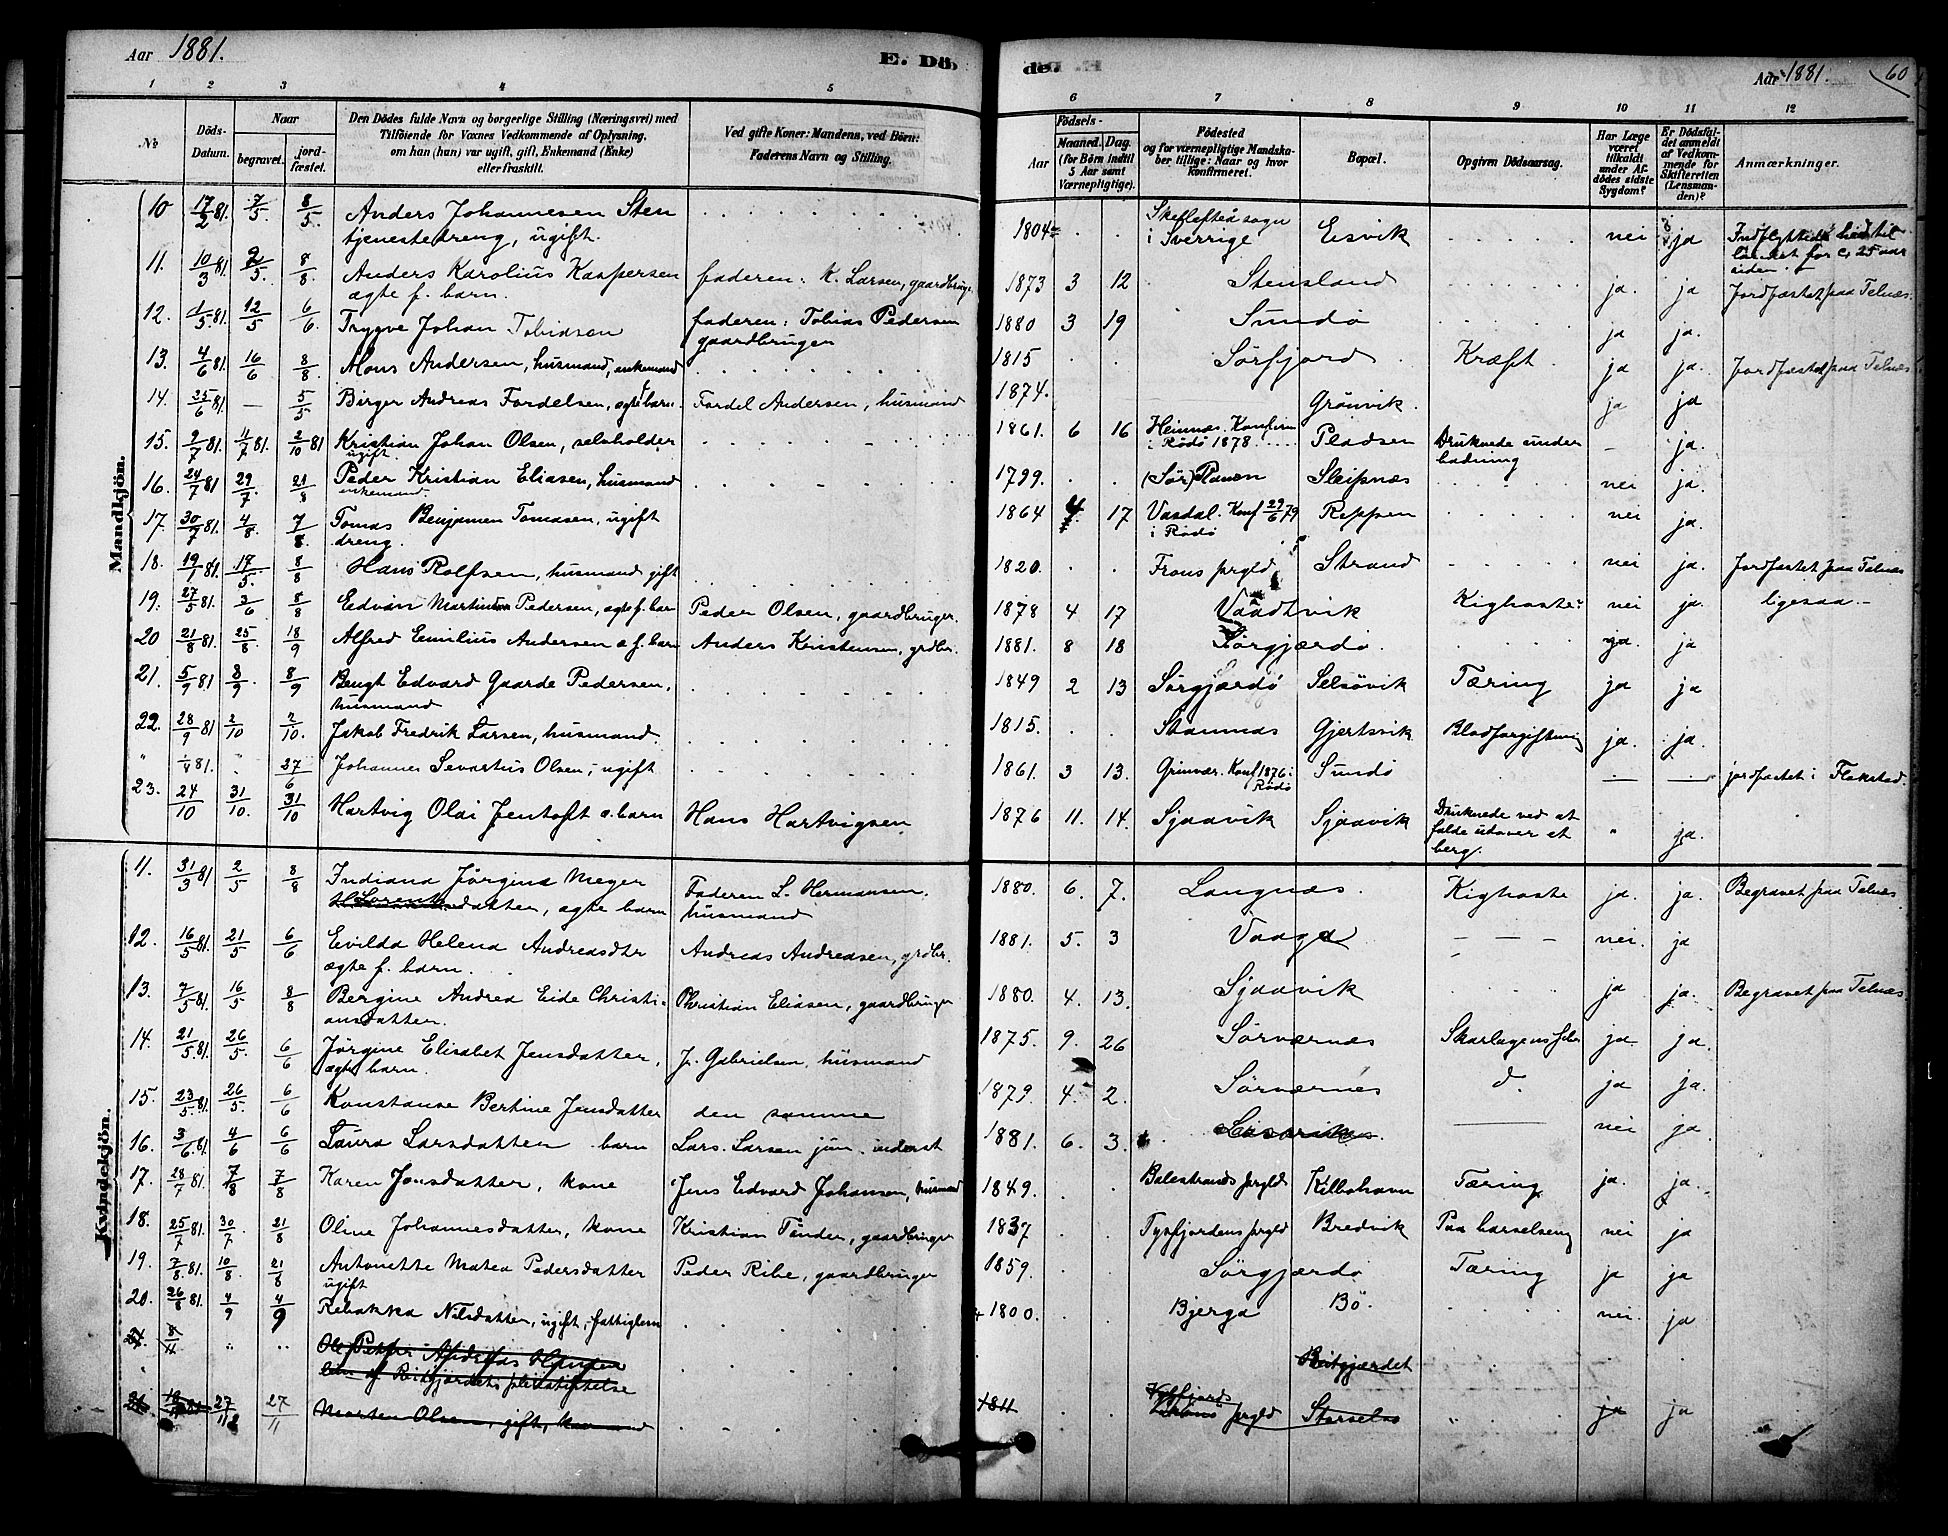 Aar 1881. E. Dö
de. Aar 1881. 60
1 2 3 4 5 6 7 8 9 10 11 12
No
Döds-Datum.
Naar
begravet.
jord-fæstet.
Den Dödes fulde Navn og borgerlige Stilling (Næringsvei) med
Tilföiende for Voxnes Vedkommende af Oplysning,
om han (hun) var ugift, gift, Enkemand (Enke)
eller fraskilt.
Ved gifte Koner: Mandens, ved Börn:
Faderens Navn og Stilling.
Födsels-
Aar
Maaned. Dag.
(for Börn indtil
5 Aar samt
Værnepligtige).
Födested
og for værnepligtige Mandska-
ber tillige: Naar og hvor
konfirmeret.
Bopæl.
Opgiven Dödsaarsag.
Har Læge
været
tilkaldt
under Af-
dödes sidste
Sygdom?
Er Dödsfal-
det anmeldt
af Vedkom-
mende for
Skifteretten
(Lensman-
den)?
Anmærkninger.
Mandkjön.
10 17/2 81. 7/5. 8/5. Anders Johannesen Sten 1804 Skeflefteå sogn Eisvik nei ja Indflyttede hid til
tjenestedreng, ugift. i Sverrige landet for c. 25 aar
siden.
11. 10/3 81. 2/5. 8/8. Anders Karolius Kaspersen faderen: K. Larsen, gaardbruger 1873 3 12 Stensland ja. ja Jordfæstet paa Telnæs.
ægte f. barn.
12. 1/5 81. 12/5 6/6 Trygve Johan Tobiasen faderen: Tobias Pedersen 1880 3 19 Sundö ja ja.
gaardbruger
13. 4/6 81. 16/6 8/8. Mons Andersen, husmand, enkemand 1815 Sörfjord Kræft. ja ja. Jordfæstet paa Telnæs
14. 25/6 81. — 5/5 Birger Andreas Fordelsen, ægte barn. Fordel Andersen, husmand 1874. Grönvik. ja ja
15. 9/7 81. 11/7 81. 2/10 81 Kristian Johan Olsen, selvholder 1861. 6 16 Heinnæs. Konfirm. Pladsen Druknede under - ja.
ugift. i Rödö 1878. badning
16. 24/7 81 29/7. 21/8 Peder Kristian Eliasen, husmand 1799. (Sör) Ranen Sleipnæs nei ja.
enkemand.
17. 30/7 81. 4/8. 7/8. Tomas Benjamen Tomasen, ugift 1864 4. 17 Vasdal. Konf 29/6 79 Reppen nei ja.
dreng. i Rödö
18. 19/1 81. 17/5. 8/8 Hans Rolfsen, husmand gift 1820. Frons prgld Strand nei ja. Jordfæstet paa Telnæs
19. 27/5 81. 3/6 8/8 Edvin Martinus Pedersen, ægte f. bar Peder Olsen, gaardbruger. 1878 4 17 Vaadtvik Kighoste. nei ja. ligesaa.
20 21/8 81. 25/8. 18/9 Alfred Emilius Andersen æ f. barn Anders Kristensen, grdbr. 1881. 8 18 Sörgjærdö. ja. ja
21. 5/9 81 8/9. 8/9 Bengt Edvard Gaarde Pedersen, 1849 2 13 Sörgjærdö Selsövik Tæring ja ja
husmand
22. 28/9 81 2/10 2/10. Jakob Fredrik Larsen, husmand. 1815. Stamnæs Gjertsvik Blodforgiftning ja. ja.
" 1/4 81. " 27/6 Johannes Sevartius Olsen, ugift 1861 3 13. Grinvær. Konf 1876 i Sundö — — jordfæstet i Flakstad.
Rödö
23. 24/10 31/10. 31/10 Hartvig Olai Jentoft æ. barn Hans Hartvigsen 1876 11. 14. Sjaavik Sjaavik Druknede ved at " ja.
falde udover et
berg.
Kvindekjön.
11. 31/3 81 2/5 8/8 Indiana Jörgine Meyer Faderen L. Hermansen, 1880. 6. 7. Langnæs. Kighoste ja. ja. Begravet paa Telnæs
Lorentsdatter, ægte barn husmand
12. 16/5 81. 21/5 6/6 Evilda Helena Andreasdtr Andreas Andreasen, grdbr. 1881. 5. 3 Vaaga — — — nei. ja
ægte f. barn.
13. 7/5 81. 16/5 8/8 Bergine Andrea Eide Christi- Christian Eliasen, gaardbruger 1880. 4. 13. Sjaavik ja ja. Begravet paa Telnæs.
ansdatter.
14. 21/5 81. 26/5. 6/6 Jörgine Elisabet Jensdatter, J. Gabrielsen, husmand 1875. 9. 26 Sörværnæs Skarlagensfeber ja. ja.
ægte barn.
15. 23/5 81. 26/5. 6/6 Konstanse Bertine Jensdatter den samme 1879. 4. 2. Sörværnes d. ja ja.
16. 3/6. 81. 4/6 6/6 Laura Larsdatter barn Lars Larsen jun. inderst 1881. 6. 3. — nei ja.
17. 28/7 81. 7/8 7/8 Karen Jonsdatter, kone Jens Edvard Johansen, husmand 1849. Balestrands prgld Kilbohavn Tæring ja. ja.
18. 25/7 81. 30/7. 21/8 Oline Johannesdatter, kone Kristian Tönder, gaardbruger 1837 Tysfjordens prgld Bredvik Paa barselseng nei ja
19. 7/8 81. 10/8. 21/8 Antonette Matea Pedersdatter Peder Ribe, gaardbruger 1859. Sörgjærdö Tæring ja ja
ugift
20. 26/8 81. 4/9 4/9 Rebekka Nilsdatter, ugift, fattiglem 1800. Bjerga Bö. nei. ja
21. 8/11 " " Ole Petter Andreas Hansen Reitgjærdet
lem af Reitgjærdets pleiestiftelse
27/11 27/11 Morten Olsen, gift, 1811 Tysfjords prgld Storselsö " ja ja